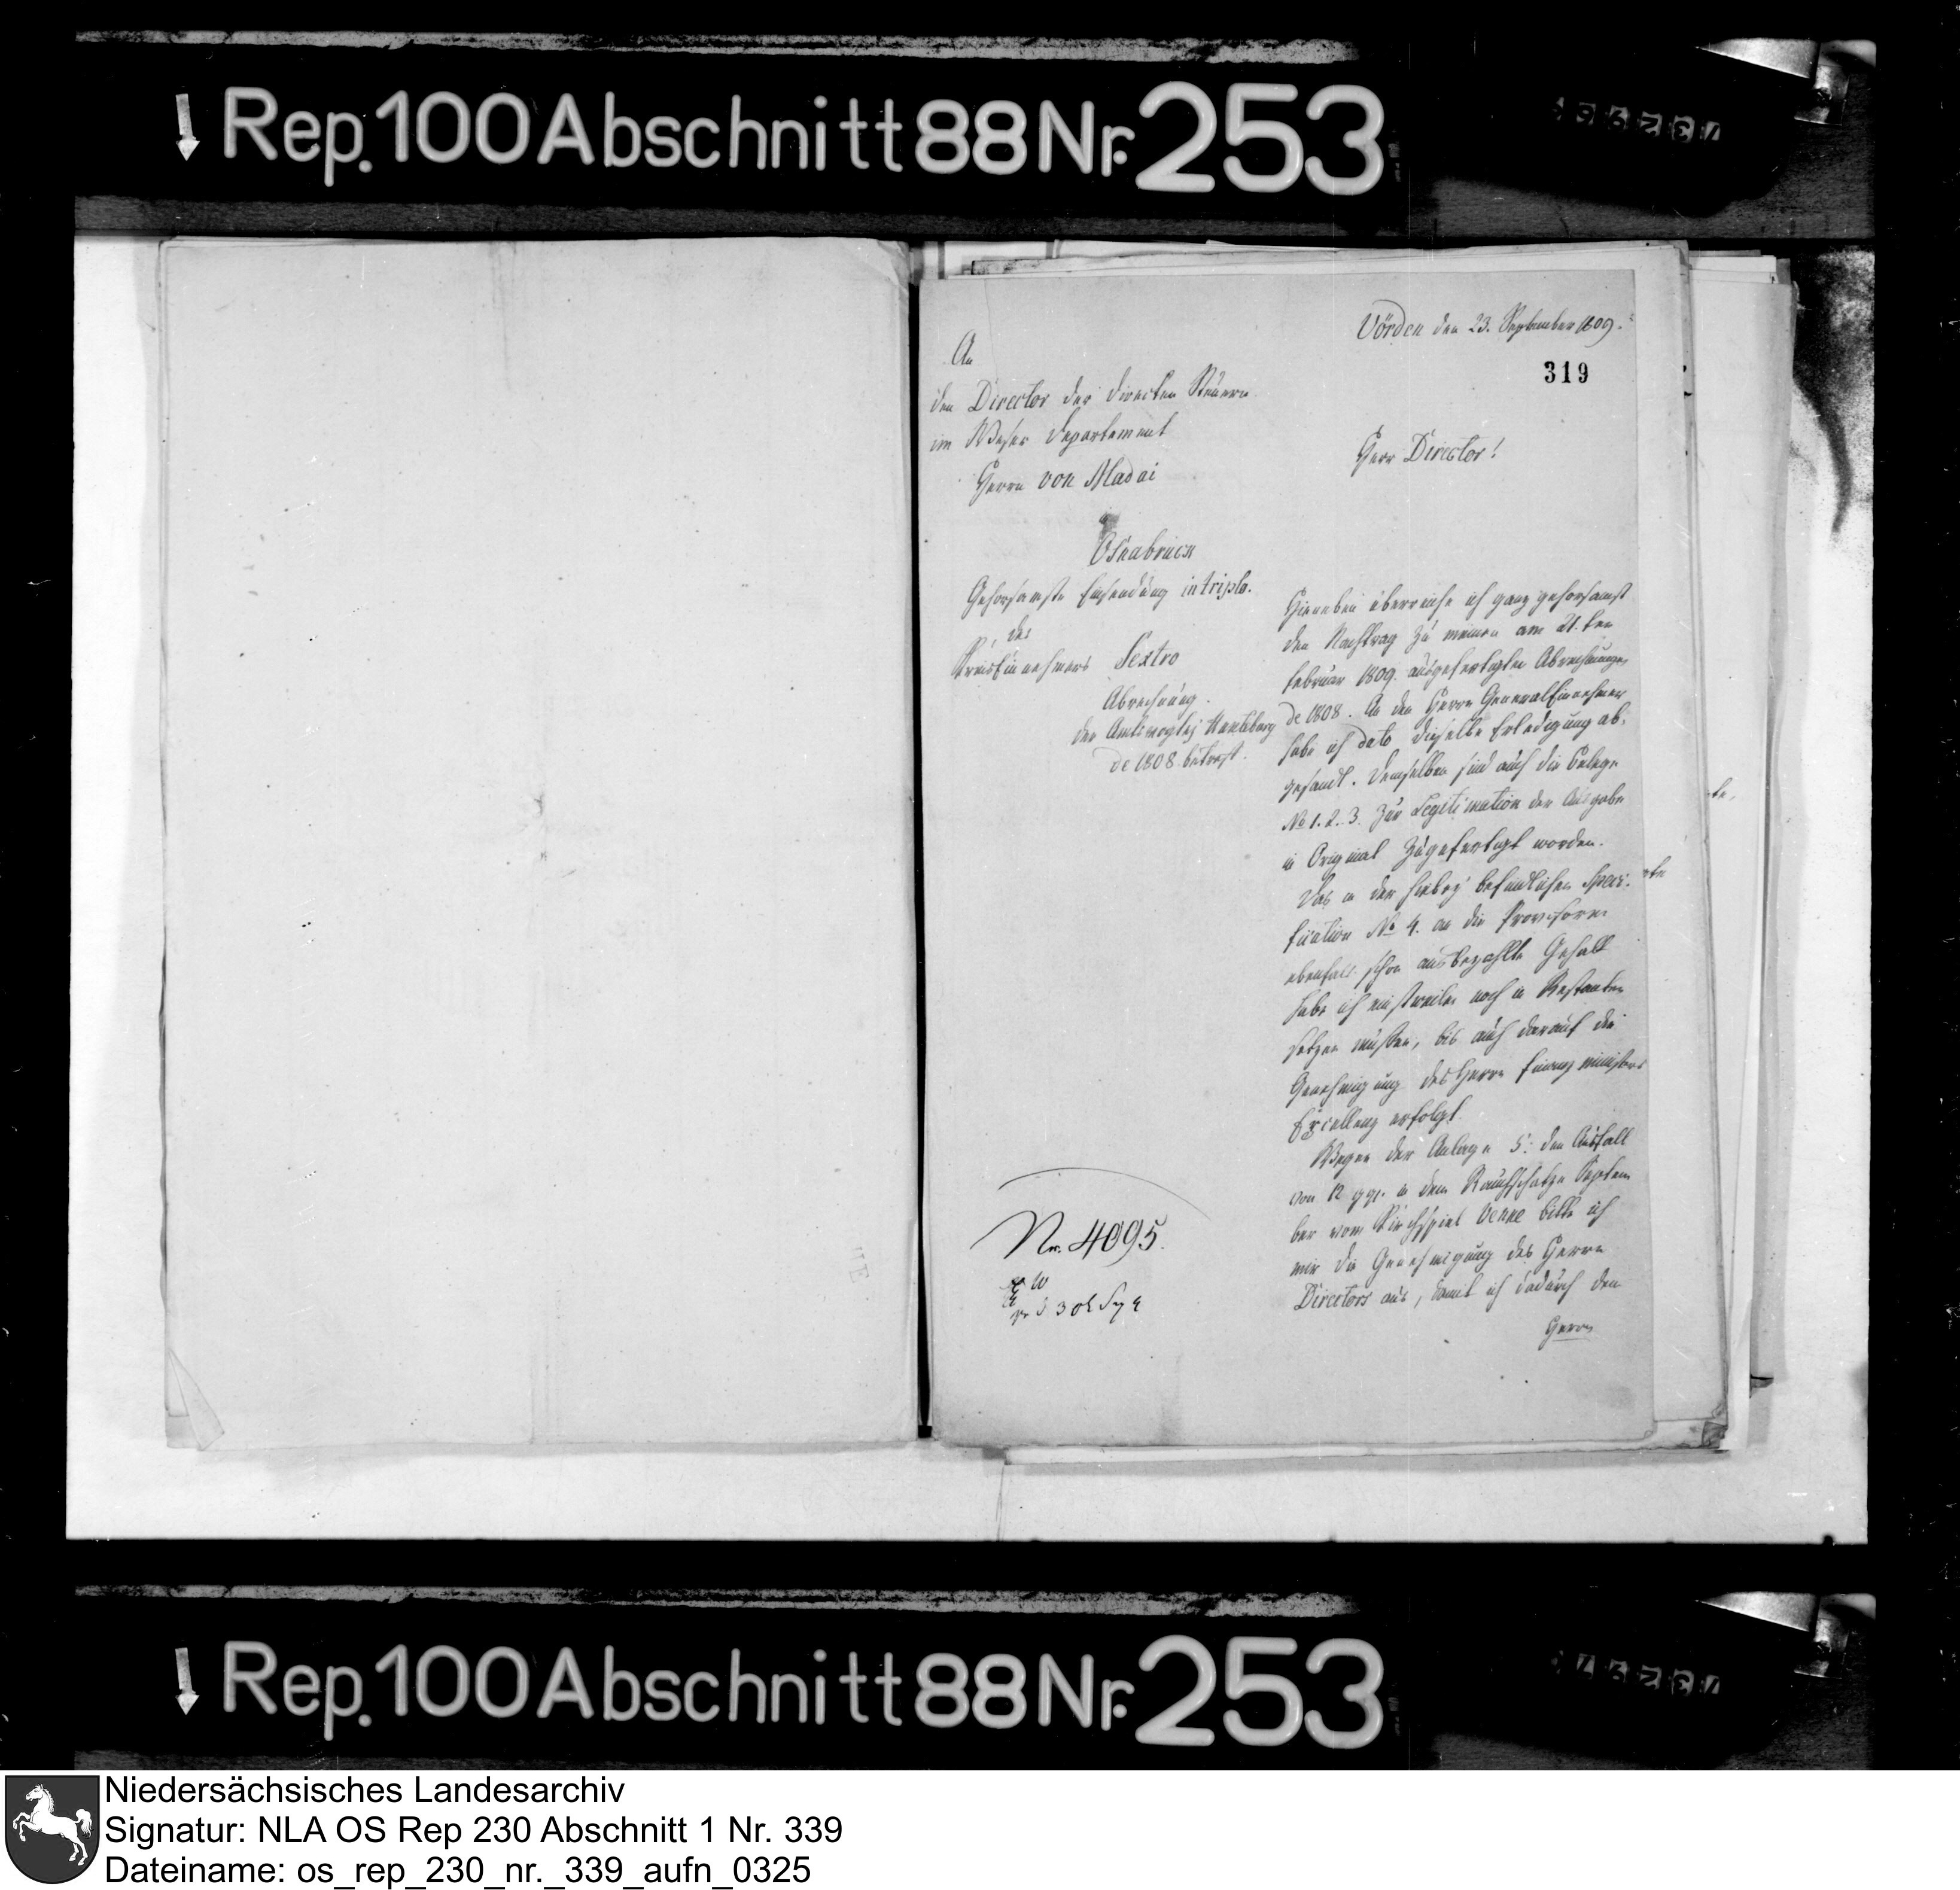 Rep. 100 Abschnitt 88 Nr. 253
Vörden den 23. September 1809.
319
An
den Director der directen Steuern
im Weser Departement
Herrn von Madai
Osnabrück
Gehorsamste Einsendung in triplo.
des
Kreiseinnehmers Sextro
Abrechnung
der Amtsvogtej
de 1808 betreff.
Herr Director!
Hierneben überreiche ich ganz gehorsamst
den Nachtrag zu meinen am 21.ten
Februar 1809. ausgefertigten Abrechnungen
de 1808. An den Herrn Generaleinnehmer
habe ich dato dieselbe Erledigung ab-
gesandt. Demselben sind auch die Belege
No 1. 2. 3. zur Legitimation der Ausgabe
in Original zugefertigt worden.
Das in der hiebey befindlichen Speci-
fication No 4. an die Provisoren
ebenfals schon ausbezahlte Gehalt
habe ich einstweilen noch in Restanten
setzen müßen, bis auch darauf die
Genehmigung des Herrn Finanz ministers
Excellenz erfolgt.
Wegen der Anlage 5. den Ausfall
von 12 ggr. in dem Rauchschatze Septem
ber vom Kirchspiel Venne bitte ich
mir die Genehmigung des Herrn
Directors aus, damit ich dadurch den
Herrn
Nr. 4095.
Rep. 100 Abschnitt 88 Nr. 253
Niedersächsisches Landesarchiv
Signatur: NLA OS Rep 230 Abschnitt 1 Nr. 339
Dateiname: os_rep_230_nr._339_aufn_0325